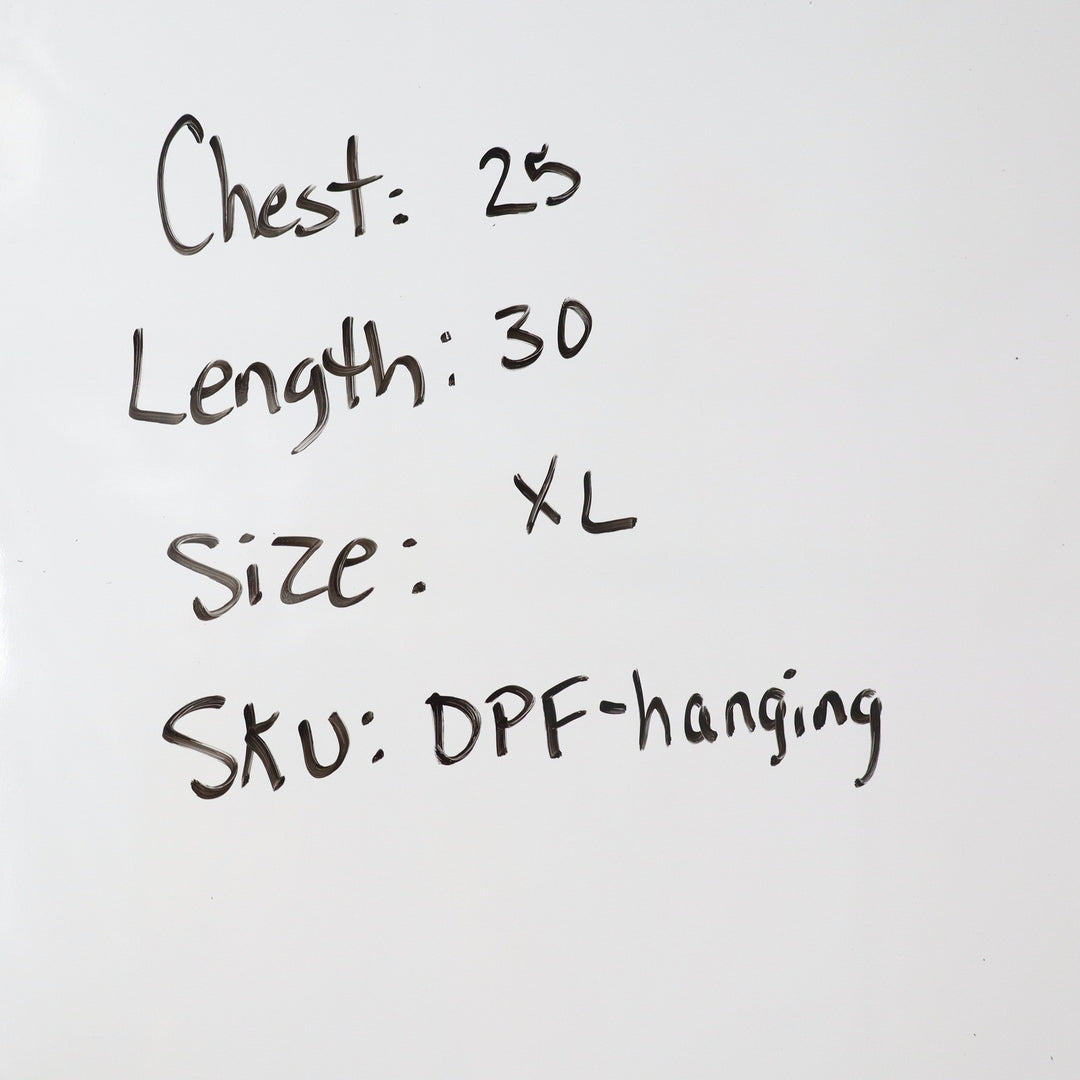 Chest: 25
Length: 30
Size: XL
Sku: DPF-hanging